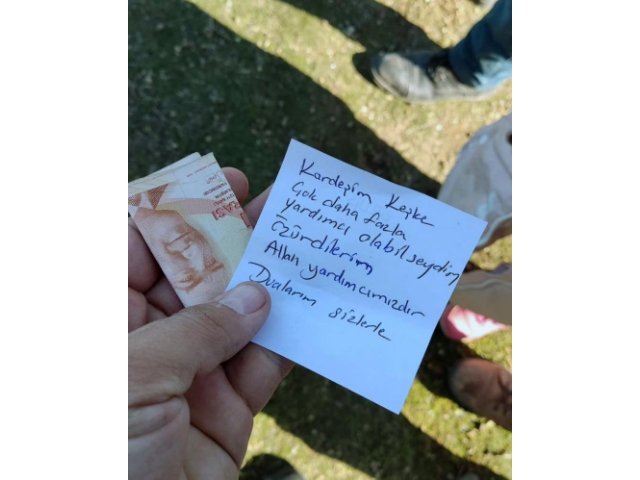 Kardeşim Keşke
Çok daha fazla
yardımcı olabilseydim
özürdilerim
Allah yardımcımızdır
Dualarım sizlerle